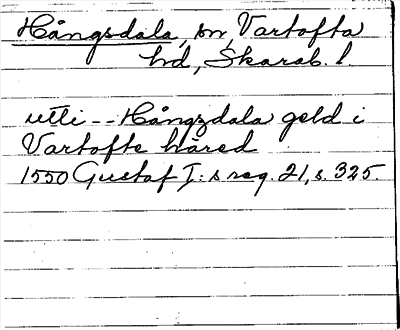 Hångsdala, sn, Vartofta
hd, Skarab. l.
utti -- Hångzdala geld i
Vartofte håred
1550 Gustaf I:s reg. 21, s. 325.